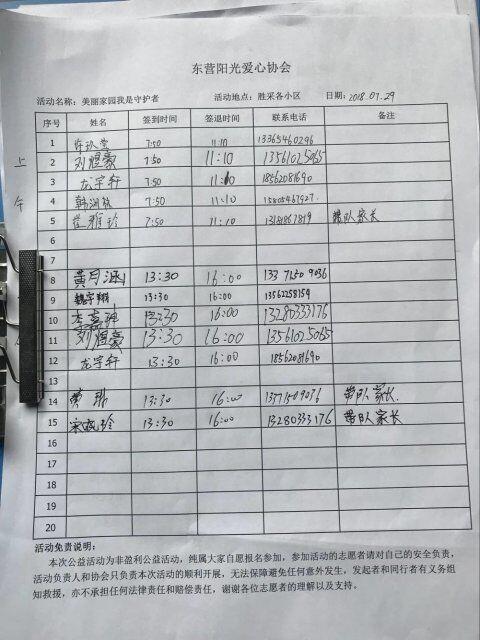 东营阳光爱心协会
活动名称：美丽家园我是守护者 活动地点：胜采各小区 日期：2018.07.29
序号 姓名 签到时间 签退时间 联系电话 备注
上
午
1 7:50 11:10 13365460296
2 刘恒豪 7:50 11:10 13561025065
3 龙宇轩 7:50 11:10 18562081690
4 7:50 11:10 15805467927
5 崔雅玲 7:50 11:10 带队家长
8 黄月涵 13:30 16:00 13371509036
9 魏宇翔 13:30 16:00 13562258154
10 13:30 16:00 13280333176
11 刘恒豪 13:30 16:00 13561025065
12 龙宇轩 13:30 16:00 18562081690
13
14 13:30 16:00 13371509036 带队家长
15 13:30 16:00 13280333176 带队家长
16
17
18
19
20
活动免责说明：
本次公益活动为非盈利公益活动，纯属大家自愿报名参加，参加活动的志愿者请对自己的安全负责，
活动负责人和协会只负责本次活动的顺利开展，无法保障避免任何意外发生，发起者和同行者有义务组
知救援，亦不承担任何法律责任和赔偿责任，谢谢各位志愿者的理解以及支持。